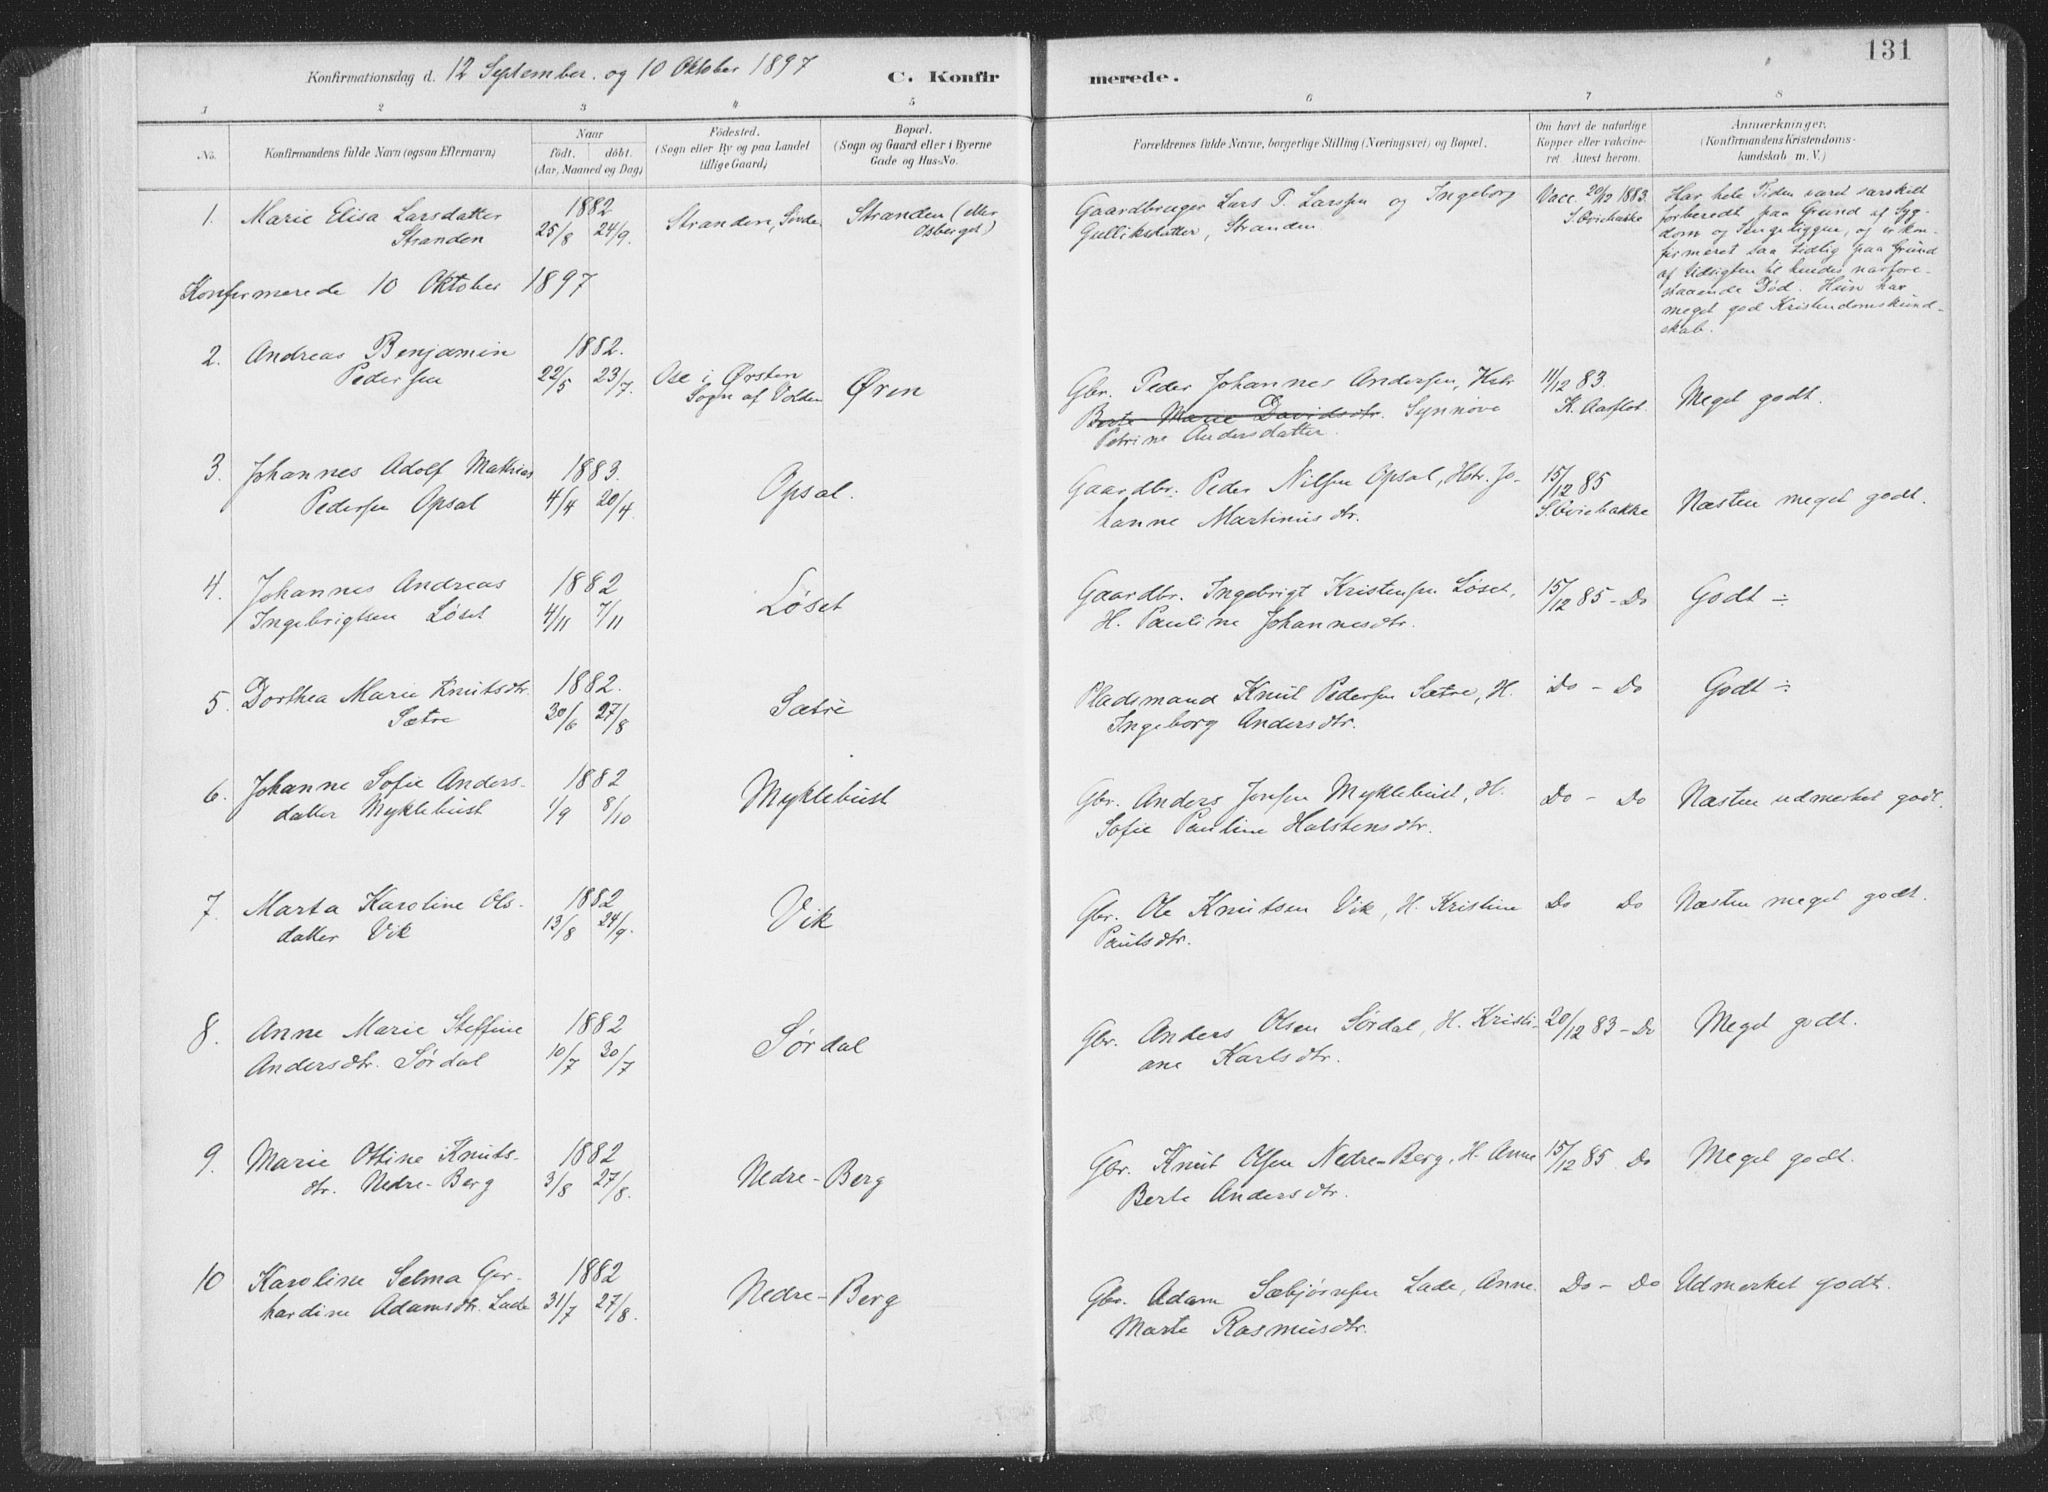 131
Konfirmationsdag d. 12 September. og 10 Oktober 1897
C. Konfirmerede.
1 2 3 4 5 6 7 8
No. Konfirmandens fulde Navn (ogsaa Efternavn)
Naar födt. döbt. (Aar, Maaned og Dag)
Födested. (Sogn eller By og paa Landet tillige Gaard)
Bopæl. (Sogn og Gaard eller i Byerne Gade og Hus-No.
Forældrenes fulde Navne, borgerlige Stilling (Næringsvei) og Bopæl.
Om havt de naturlige Kopper eller vakcineret. Attest herom.
Anmærkninger. (Konfirmandens Kristendomskundskab m. V.)
1. Marie Elisa Larsdatter 1882 Stranden (eller
Stranden 25/8 24/9. Stranden, Osberget)
Gaardbruger Lars T. Larssen og Ingeborg Vacc. 20/12 1883.
Gulliksdatter, Stranden
Har hele Tiden været særskilt
forberedt paa Grund af Syg-
dom og Sengeliggen, og er kon-
firmeret saa tidlig paa Grund
af Udsigten til hendes nærfore-
staaende Död. Hun har
meget god Kristendomskund-
skab.
Konfirmerede 10 Oktober 1897
2. Andreas Benjamin 1882.
Pedersen 22/5 23/7. Ose i Ørsten Øren
Sogn af Volden
Gbr. Peder Johannes Andersen, Hstr 11/12 83.
Berte Marie Davidsdtr. Synnøve K. Aaflot. Meget godt.
Petrine Andersdatter.
3. Johannes Adolf Mathias 1883.
Pedersen Opsal 4/4 20/4 Opsal.
Gaardbr. Peder Nilsen Opsal, Hstr. Jo- 15/12 85
hanne Martinusdtr. Næsten meget godt.
4. Johannes Andreas 1882
Ingebrigtsen Løset 4/11 7/11 Løset
Gaardbr. Ingebrigt Kristensen Løset, 15/12 85 - Do Godt ÷
H. Pauline Johannesdtr.
5. Dorthea Marie Knutsdtr. 1882.
Sætre 30/6 27/8 Sætre
Pladsmand Knut Pedersen Sætre, H. Do - Do Godt ÷
Ingeborg Andersdtr.
6. Johanne Sofie Anders- 1882
datter Myklebust 1/9 8/10 Myklebust
Gbr. Anders Jonsen Myklebust, H. Do - Do Næsten udmerket godt.
Sofie Pauline Halstensdtr.
7. Marta Karoline Ols- 1882
datter Vik 13/8 24/9. Vik
Gbr. Ole Knutsen Vik, H. Kristine Do Do Næsten meget godt.
Paulsdtr.
8. Anne Marie Steffine 1882
Andersdtr. Sørdal 10/7 30/7 Sørdal
Gbr. Anders Olsen Sørdal, H. Kristi- 20/12 83 - Do Meget godt.
ane Karlsdtr.
9. Marie Ottine Knuts- 1882
dtr. Nedre-Berg 3/8 27/8. Nedre-Berg
Gbr. Knut Olsen Nedre-Berg, H. Anne 15/12 85. Do Meget godt.
Berte Andersdtr.
10 Karoline Selma Ger- 1882
hardine Adamsdtr. Lade 31/7 27/8. Nedre-Berg
Gbr. Adam Sæbjørnsen Lade, Anne Do - Do Udmerket godt.
Marte Rasmusdtr.